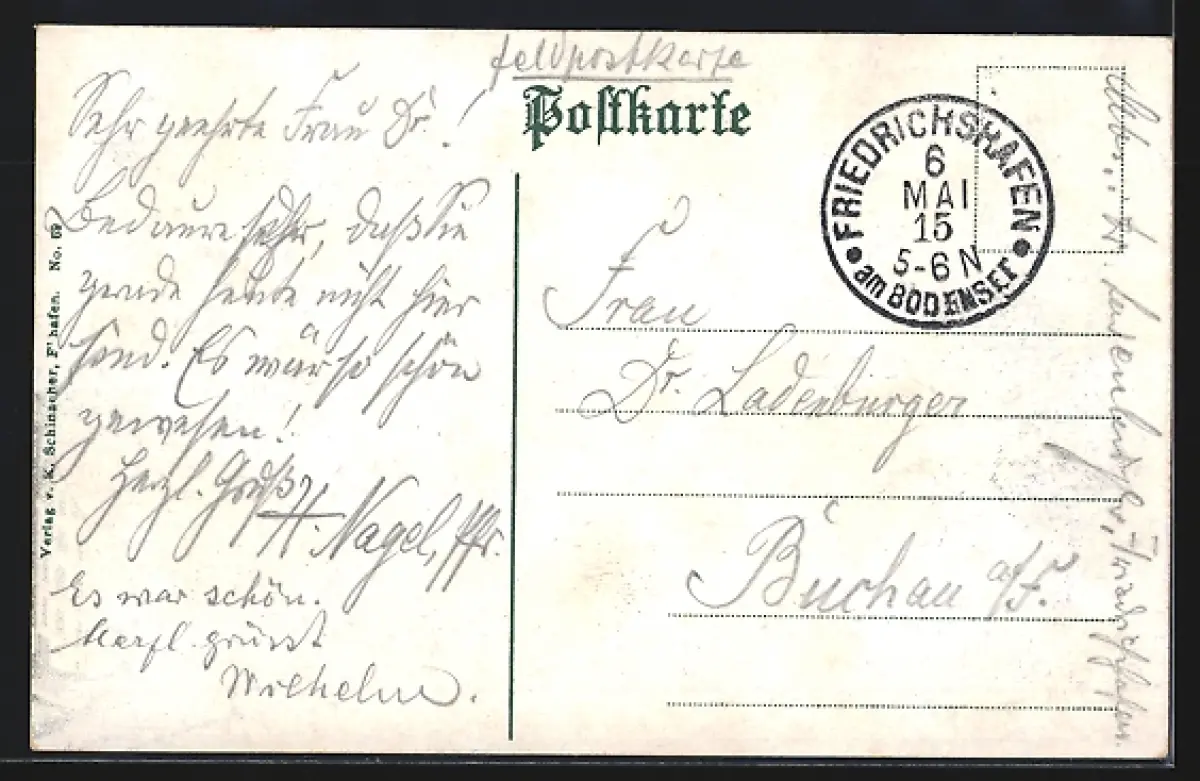 Feldpostkarte
Postkarte
Sehr geehrte Frau Dr.!
Bedaure sehr, daß Sie
gerade heute nicht hier
sind. Es wär so schön
gewesen!
Herzl. Gruß
H. Nagel, Pfr.
Es war schön.
Herzl. grüsst
Wilhelm.
FRIEDRICHSHAFEN
6
MAI
15
5-6 N
am BODENSEE
Frau
Dr. Ladenburger
Buchau a/F.
Verlag v. K. Schinacher, F'hafen. No. 69
Friedrichshafen.